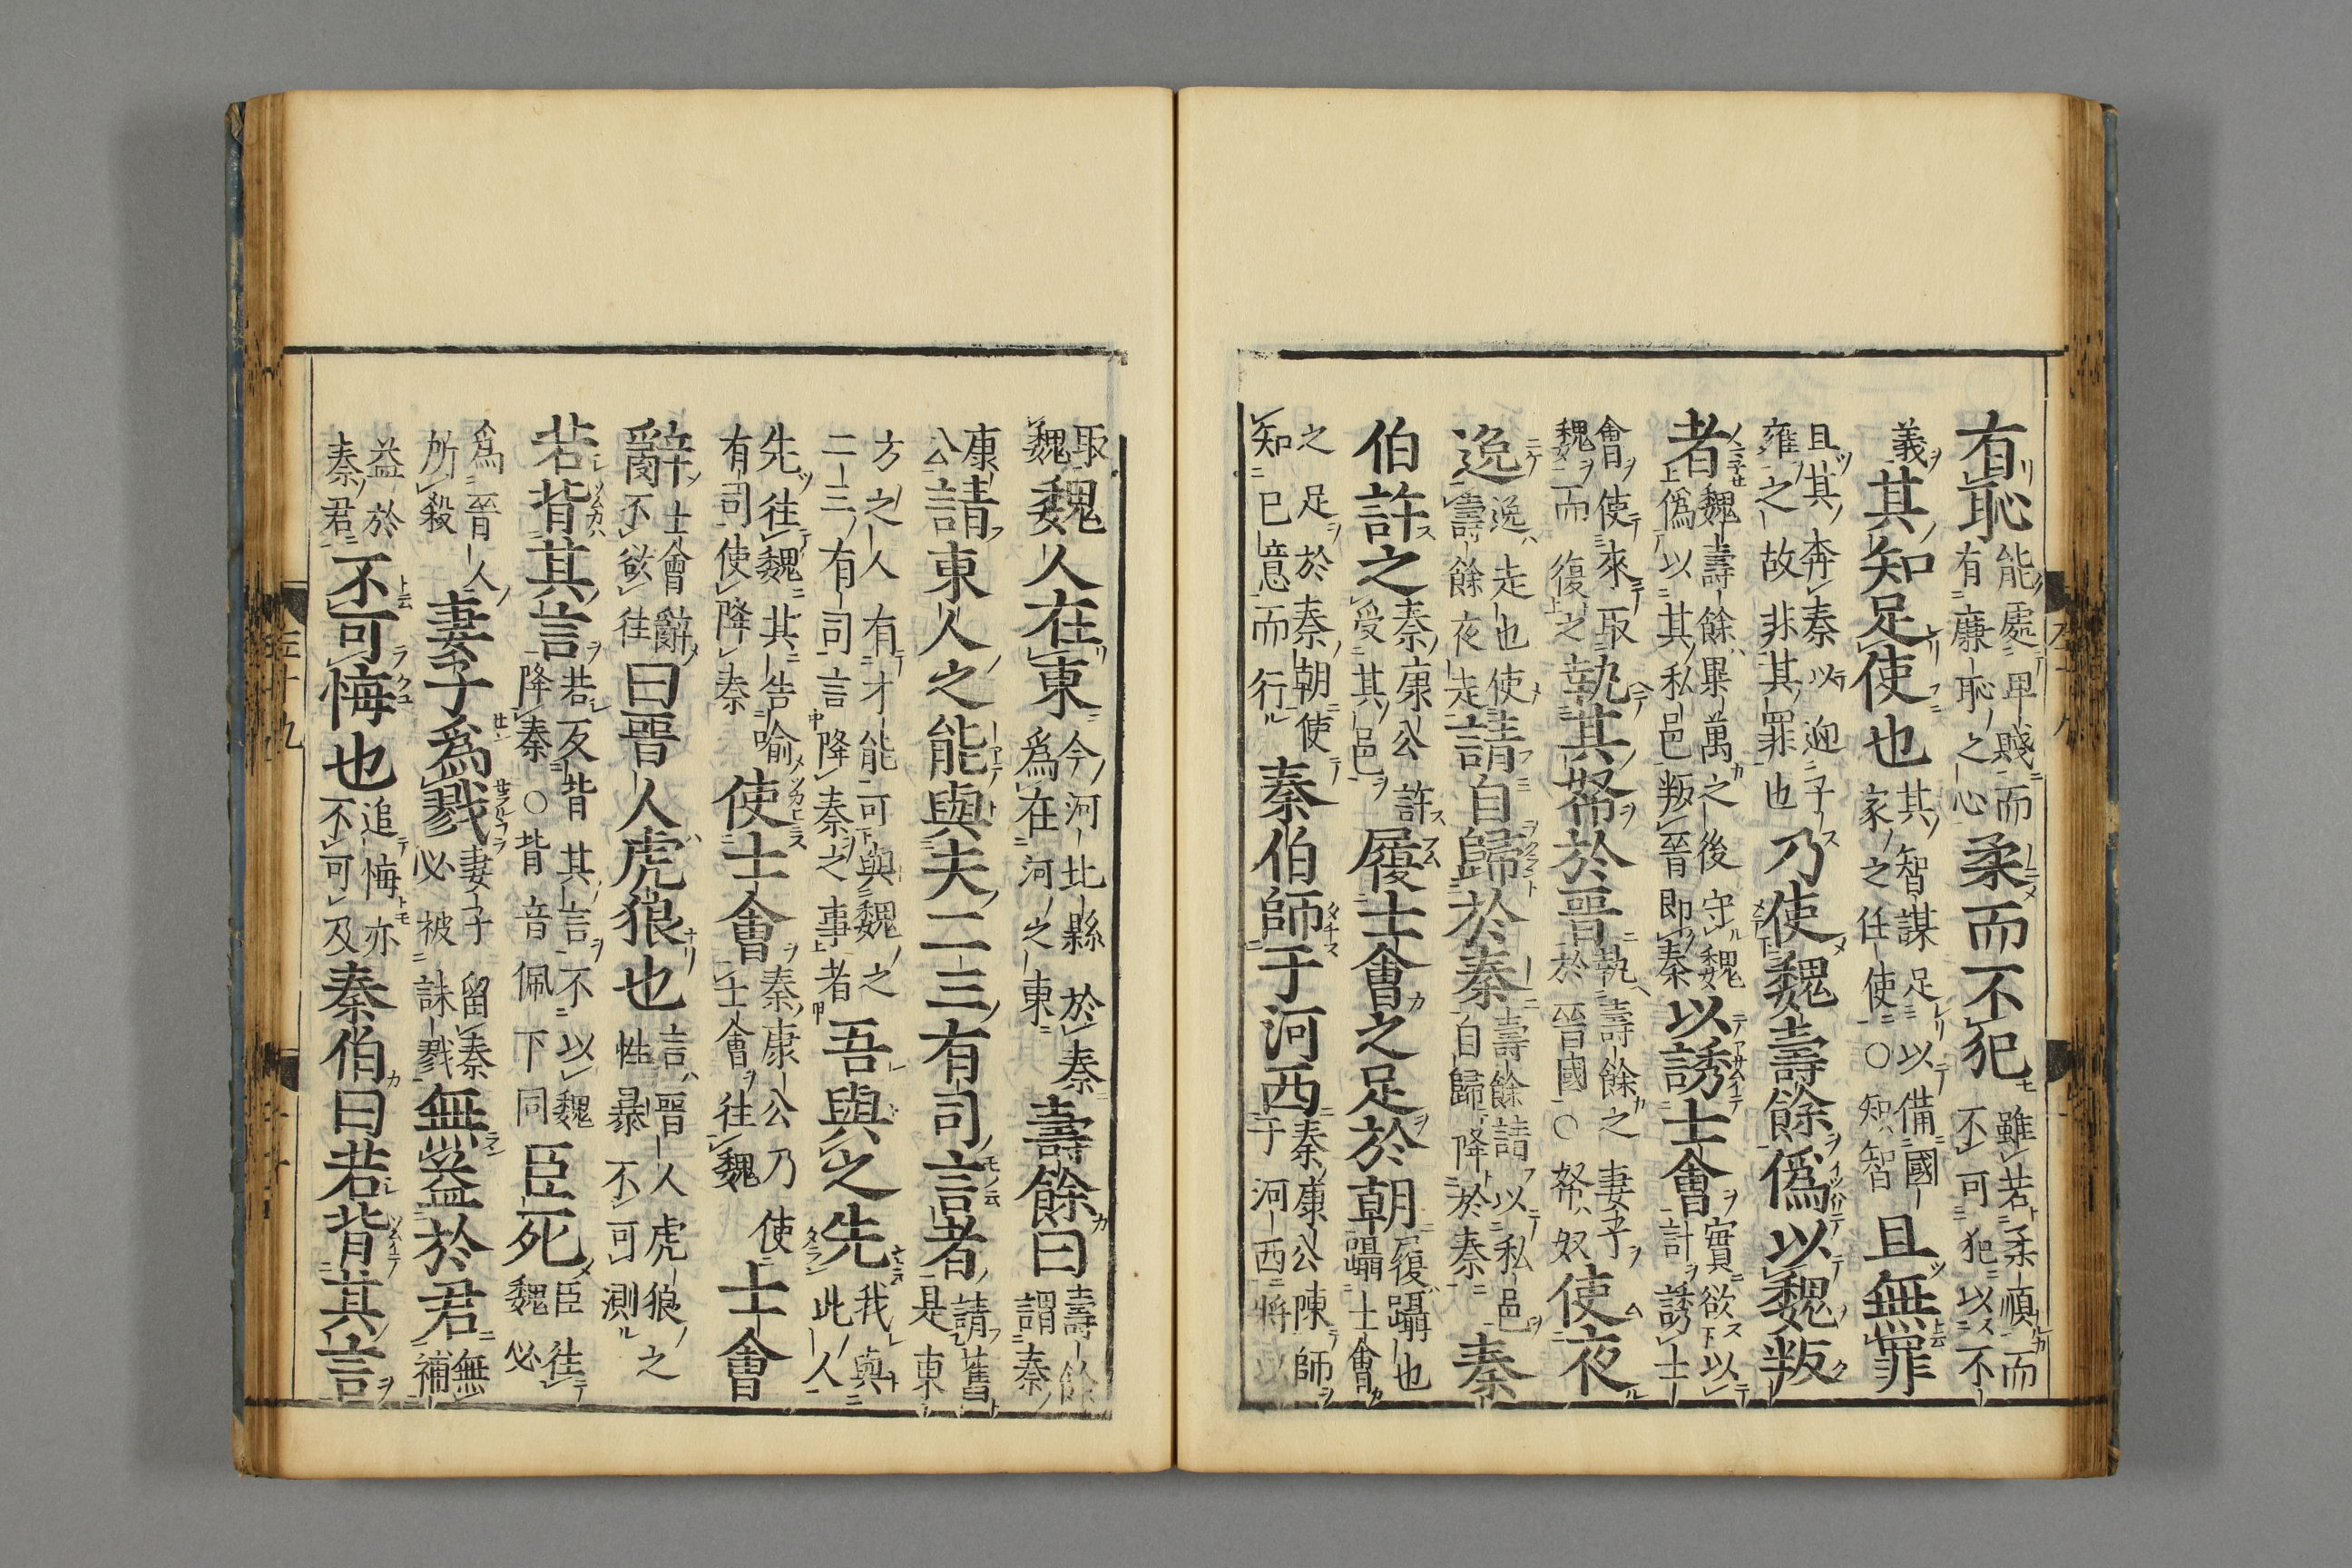 有恥能處卑賤而有廉恥之心柔而不犯雖若柔順而不可犯以不
義其知足使也其智謀足以備國家之任使○知智且無罪
且其奔秦以迎子雍之故非其罪也乃使魏壽餘僞以魏叛
者魏壽餘畢萬之後守魏僞以其私邑叛晉即秦以誘士會實欲以計誘士
會使來取魏而復之執其帑於晉執壽餘之妻子於晉國○帑奴使夜
逸逸走也使壽餘夜走請自歸於秦壽餘請以私邑自歸降於秦秦
伯許之秦康公許受其邑履士會之足於朝履躡也躡士會
之足於秦朝使知已意而行秦伯師于河西秦康公陳師于河西將以
取魏魏人在東今河北縣於秦爲在河之東壽餘曰壽餘謂秦
康公請東人之能與夫二三有司言者請舊是東
方之人有才能可與魏之二三有司言降秦之事者吾與之先我與此人
先往魏其告喻有司使降秦使士會秦康公乃使士會往魏士會
辭士會辭不欲往曰晉人虎狼也言晉人虎狼之性暴不可測
若背其言若反背其言不以魏降秦○背音佩下同臣死臣往魏必
爲晉人所殺妻子爲戮妻子留秦必被誅戮無益於君無補
益於秦君不可悔也追悔亦不可及秦伯曰若背其言